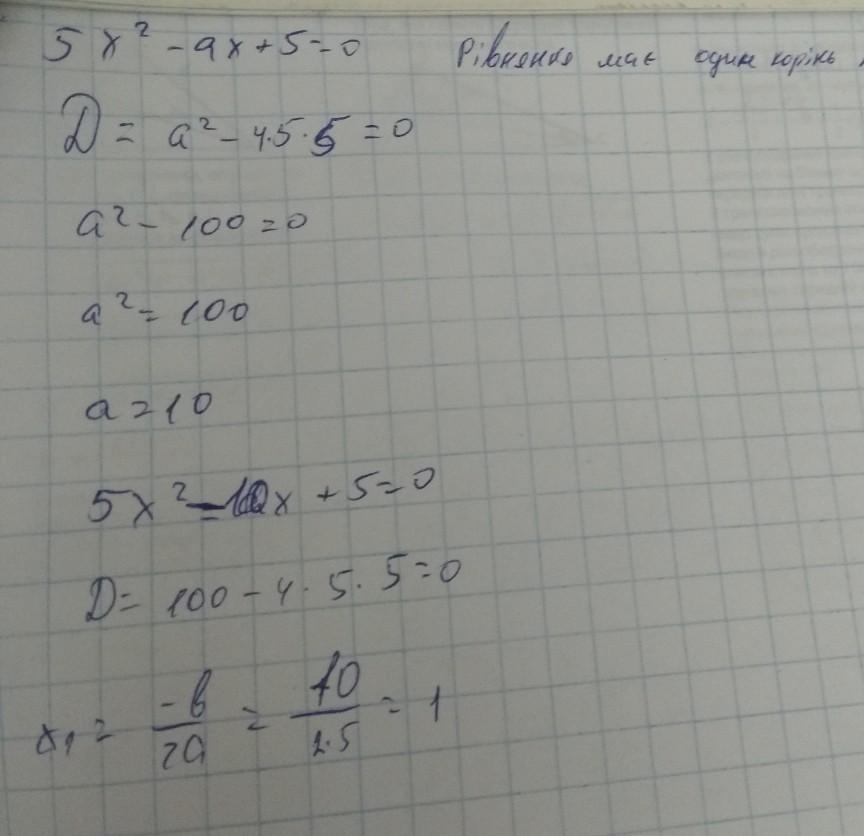 5x² - ax + 5 = 0 Рівняння має один корінь,
D = a² - 4·5·5 = 0
a² - 100 = 0
a² = 100
a = 10
5x² - 10x + 5 = 0
D = 100 - 4·5·5 = 0
x₁ = -b/2a = 10/2·5 = 1